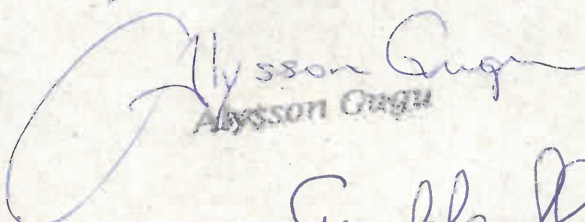 Alysson Gugu
Alysson Gugu